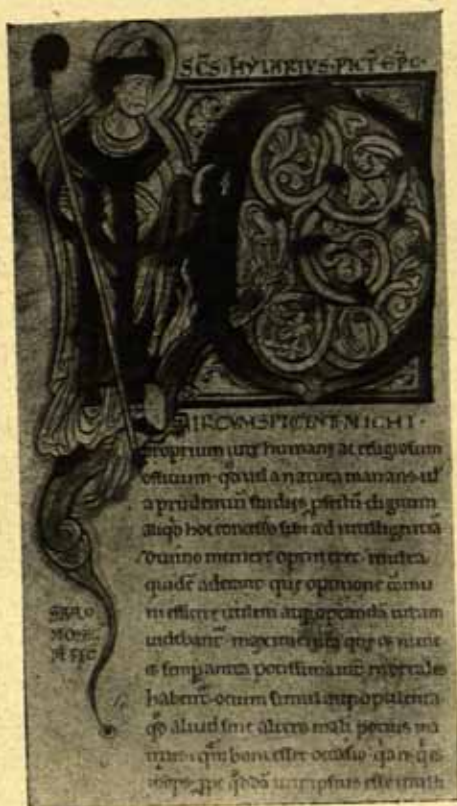 SC̄S · HYLARIVS · PICT̄ EP̄C ·
IRCVMSPICIENTI MICHI
proprium uite humane ac religiosum
officium · qđ uel a natura manans · uł
a prudentiū studiis ꝓfectū · dignum
aliqđ hoc concesso sibi ad intelligentiā
diuino munere optineret · multa
quidē aderant que opinione cōmu
ni efficere utilem atqꝫ optandā uitam
uidebant̄ · maximeqꝫ ea que et nunc
et semp̄ antea potissima int̄ mortales
habent̄ · otium simul atqꝫ opulentia ·
qđ aliud sine altero mali potius ma
boni esset occasio ·